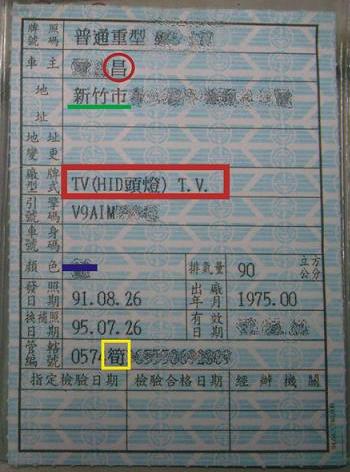 牌照號碼 普通重型
車主 昌
地址 新竹市
地址變更
廠牌型式 TV(HID頭燈) T.V.
引擎號碼 V9AIM
車身號碼
顏色 排氣量 90 立方公分
發照日期 91.08.26 出廠年月 1975.00
換補照日期 95.07.26 有效日期
管轄編號 0574筍
指定檢驗日期 檢驗合格日期 經辦機關